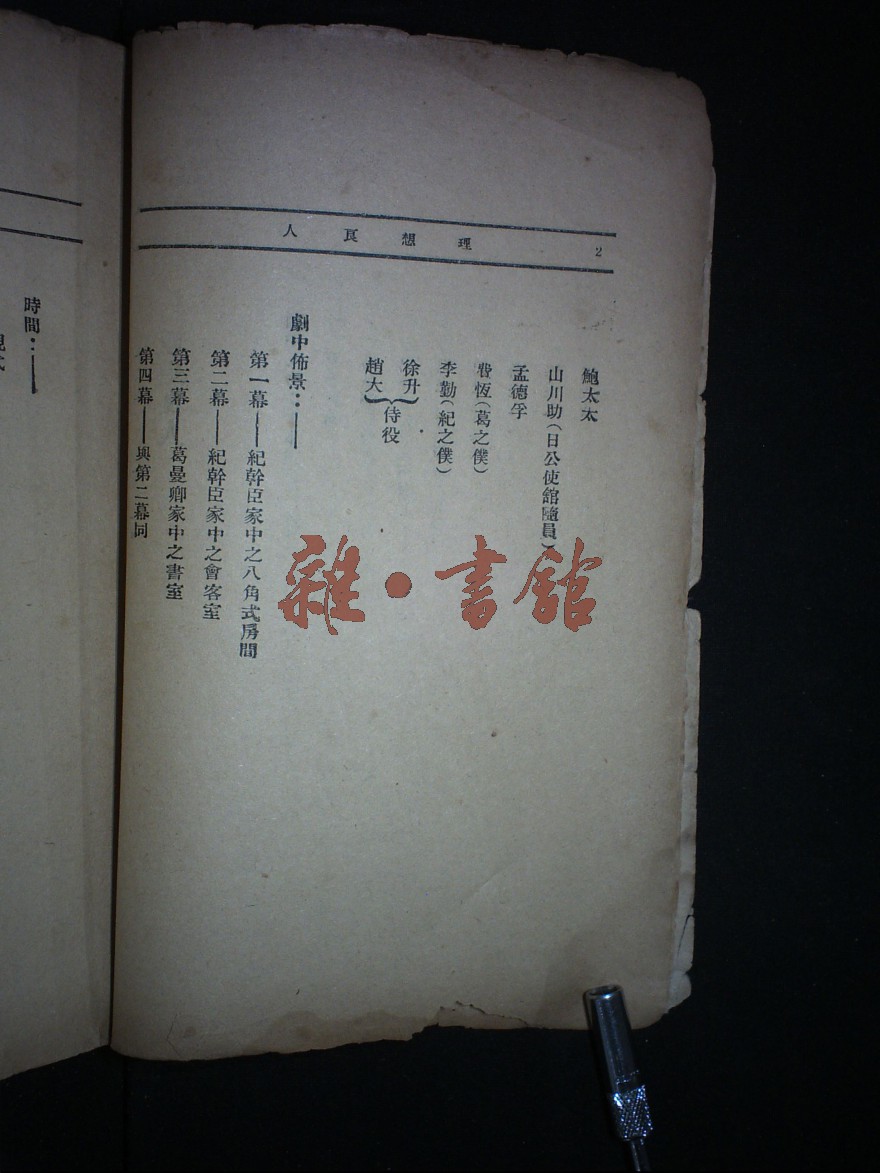 2
理想良人
鮑太太
山川助(日公使館隨員)
孟德孚
費恆(葛之僕)
李勤(紀之僕)
徐升
趙大
}侍役
劇中佈景：——
第一幕——紀幹臣家中之八角式房間
第二幕——紀幹臣家中之會客室
第三幕——葛曼卿家中之書室
第四幕——與第二幕同
時間：——
雜·書館